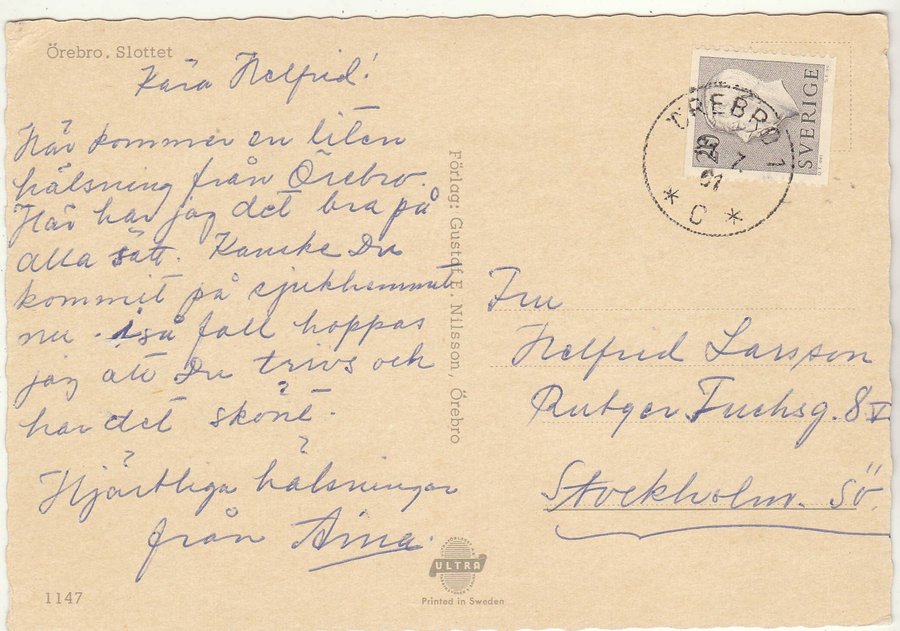 Örebro. Slottet
Kära Helfrid!
Här kommer en liten
hälsning från Örebro.
Här har jag det bra på
alla sätt. Kanske Du
kommit på sjukhemmet
nu. i så fall hoppas
jag att Du trivs och
har det skönt.
Hjärtliga hälsningar
från Aina.
1147
Förlag: Gustaf E. Nilsson, Örebro
ULTRA
Printed in Sweden
SVERIGE
ÖREBRO 1
7
* C *
Fru
Helfrid Larsson
Rutger Fuchsg. 8 V
Stockholm. Sö.